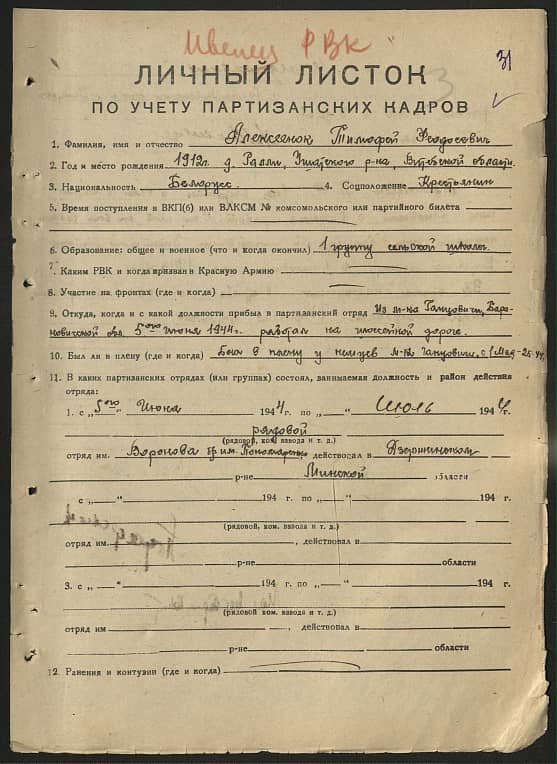 Ивенец РВК
31
ЛИЧНЫЙ ЛИСТОК
ПО УЧЕТУ ПАРТИЗАНСКИХ КАДРОВ
1. Фамилия, имя и отчество Алексеенок Тимофей Феодосевич
2. Год и место рождения 1912г. д. Ралли, Ушатского р-на Витебской области.
3. Национальность Белорусс. 4. Соцположение Крестьянин
5. Время поступления в ВКП(б) или ВЛКСМ № комсомольского или партийного билета
6. Образование: общее и военное (что и когда окончил) 1 группу сельской школы.
7. Каким РВК и когда призван в Красную Армию
8. Участие на фронтах (где и когда)
9. Откуда, как и с какой должности прибыл в партизанский отряд Из м-ка Ганцовичи, Бара-
новичской обл. 5ого июня 1944г. работал на шоссейной дороге.
10. Был ли в плену (где и когда) Был в плену у немцев м-ко Ганцовичи, с 1 мая-25
11. В каких партизанских отрядах (или группах) состоял, занимаемая должность и район действия
отряда:
1. с „5ого" Июня 1944 г. по „ " Июль 1944 г.
рядовой
(рядовой, ком. взвода и т. д.)
отряд им. Воронова бр. им. Пономаренко действовал в Дзержинском
р-не Минской области
с „ " 194 г. по „ " 194 г.
(рядовой, ком. взвода и т. д.)
отряд им. , действовал в
р-не области
3. с „ " 194 г. по „ " 194 г.
(рядовой ком. взвода и т. д.)
отряд им , действовал в
р-не области
12. Ранения и контузии (где и когда)